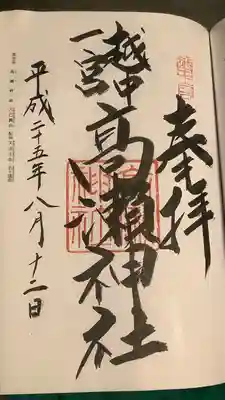 奉拝
越中
一宮
高瀬神社
平成二十五年八月十二日